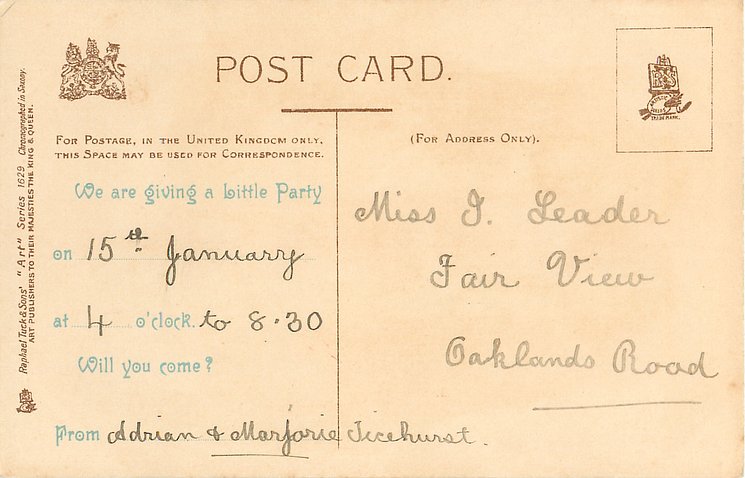 POST CARD.
FOR POSTAGE, IN THE UNITED KINGDOM ONLY,
THIS SPACE MAY BE USED FOR CORRESPONDENCE.
(FOR ADDRESS ONLY).
We are giving a Little Party
on 15th January
at 4 o'clock. to 8.30
Will you come?
From Adrian & Marjorie Ticehurst.
Miss I. Leader
Fair View
Oaklands Road
Raphael Tuck & Sons' "Art" Series 1629 Chromographed in Saxony.
ART PUBLISHERS TO THEIR MAJESTIES THE KING & QUEEN.
TRADE MARK.